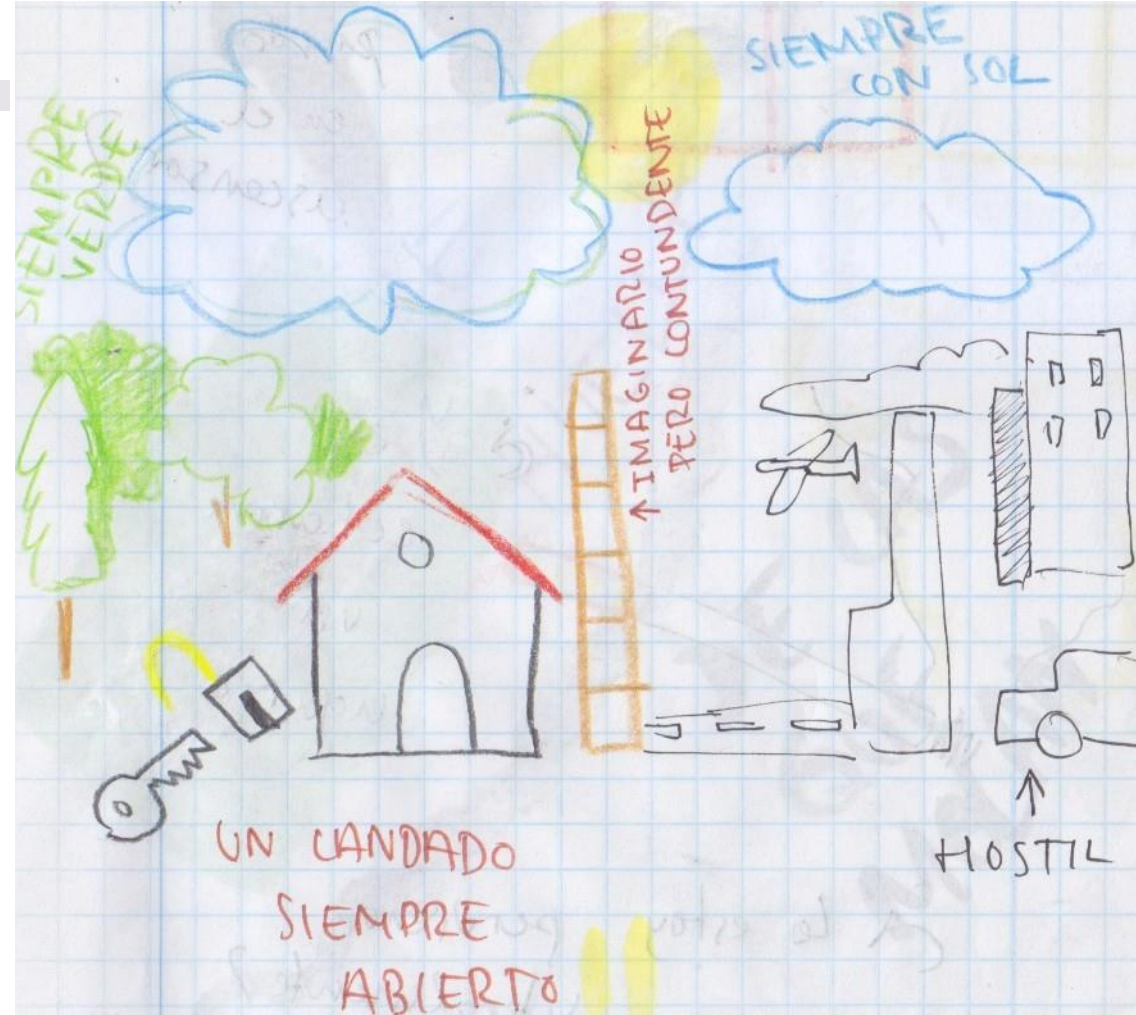 SIEMPRE
CON SOL
SIEMPRE
VERDE
↑ IMAGINARIO
PERO CONTUNDENTE
UN CANDADO
SIEMPRE
ABIERTO
HOSTIL